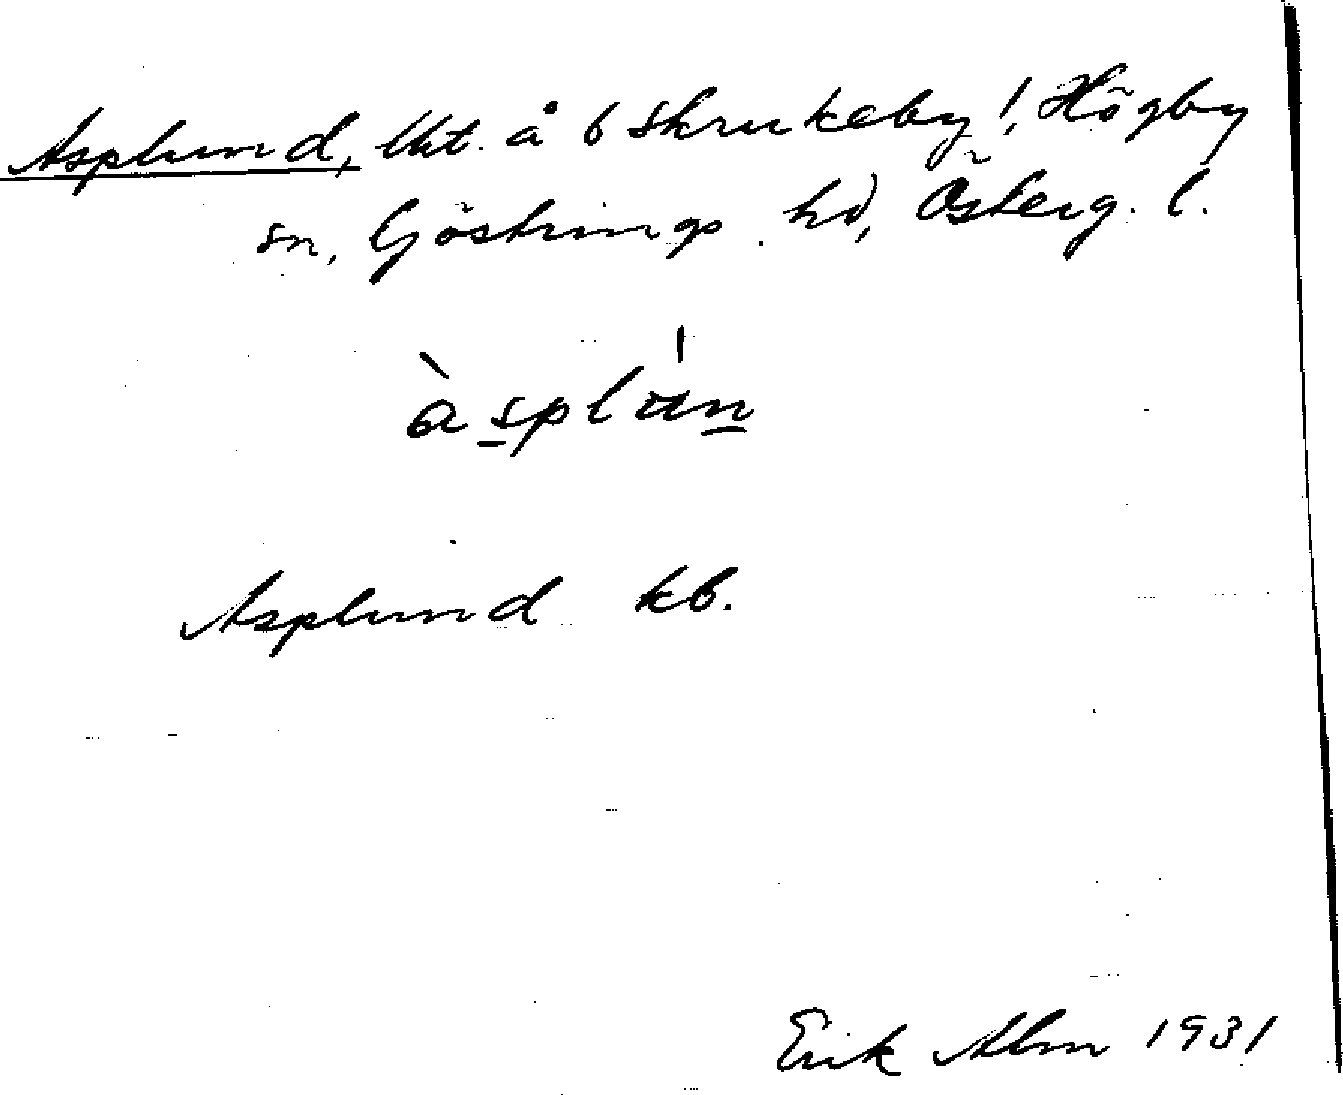 Asplund, lht. å 6 Skrukeby!, Högby
sn, Göstrings hd, Österg. l.
àsplún
Asplund kb.
Erik Alm 1931